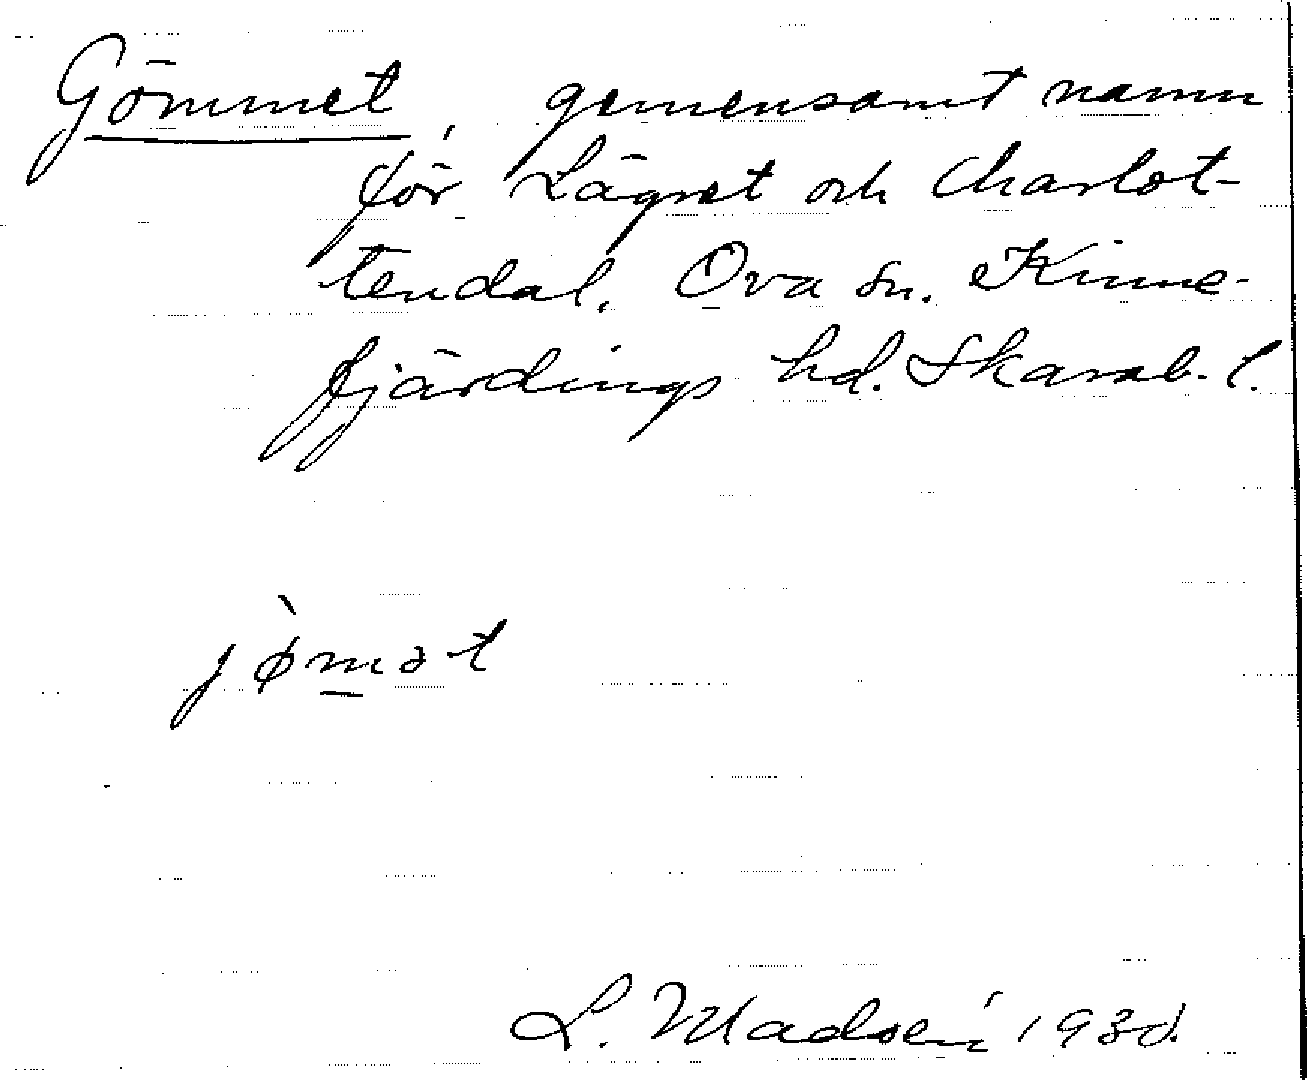 Gömmet, gemensamt namn
för Lägret och Charlot-
tendal. Ova sn. Kinne-
fjärdings hd. Skarab. l.
jø̀mət
L. Madsén 1930.